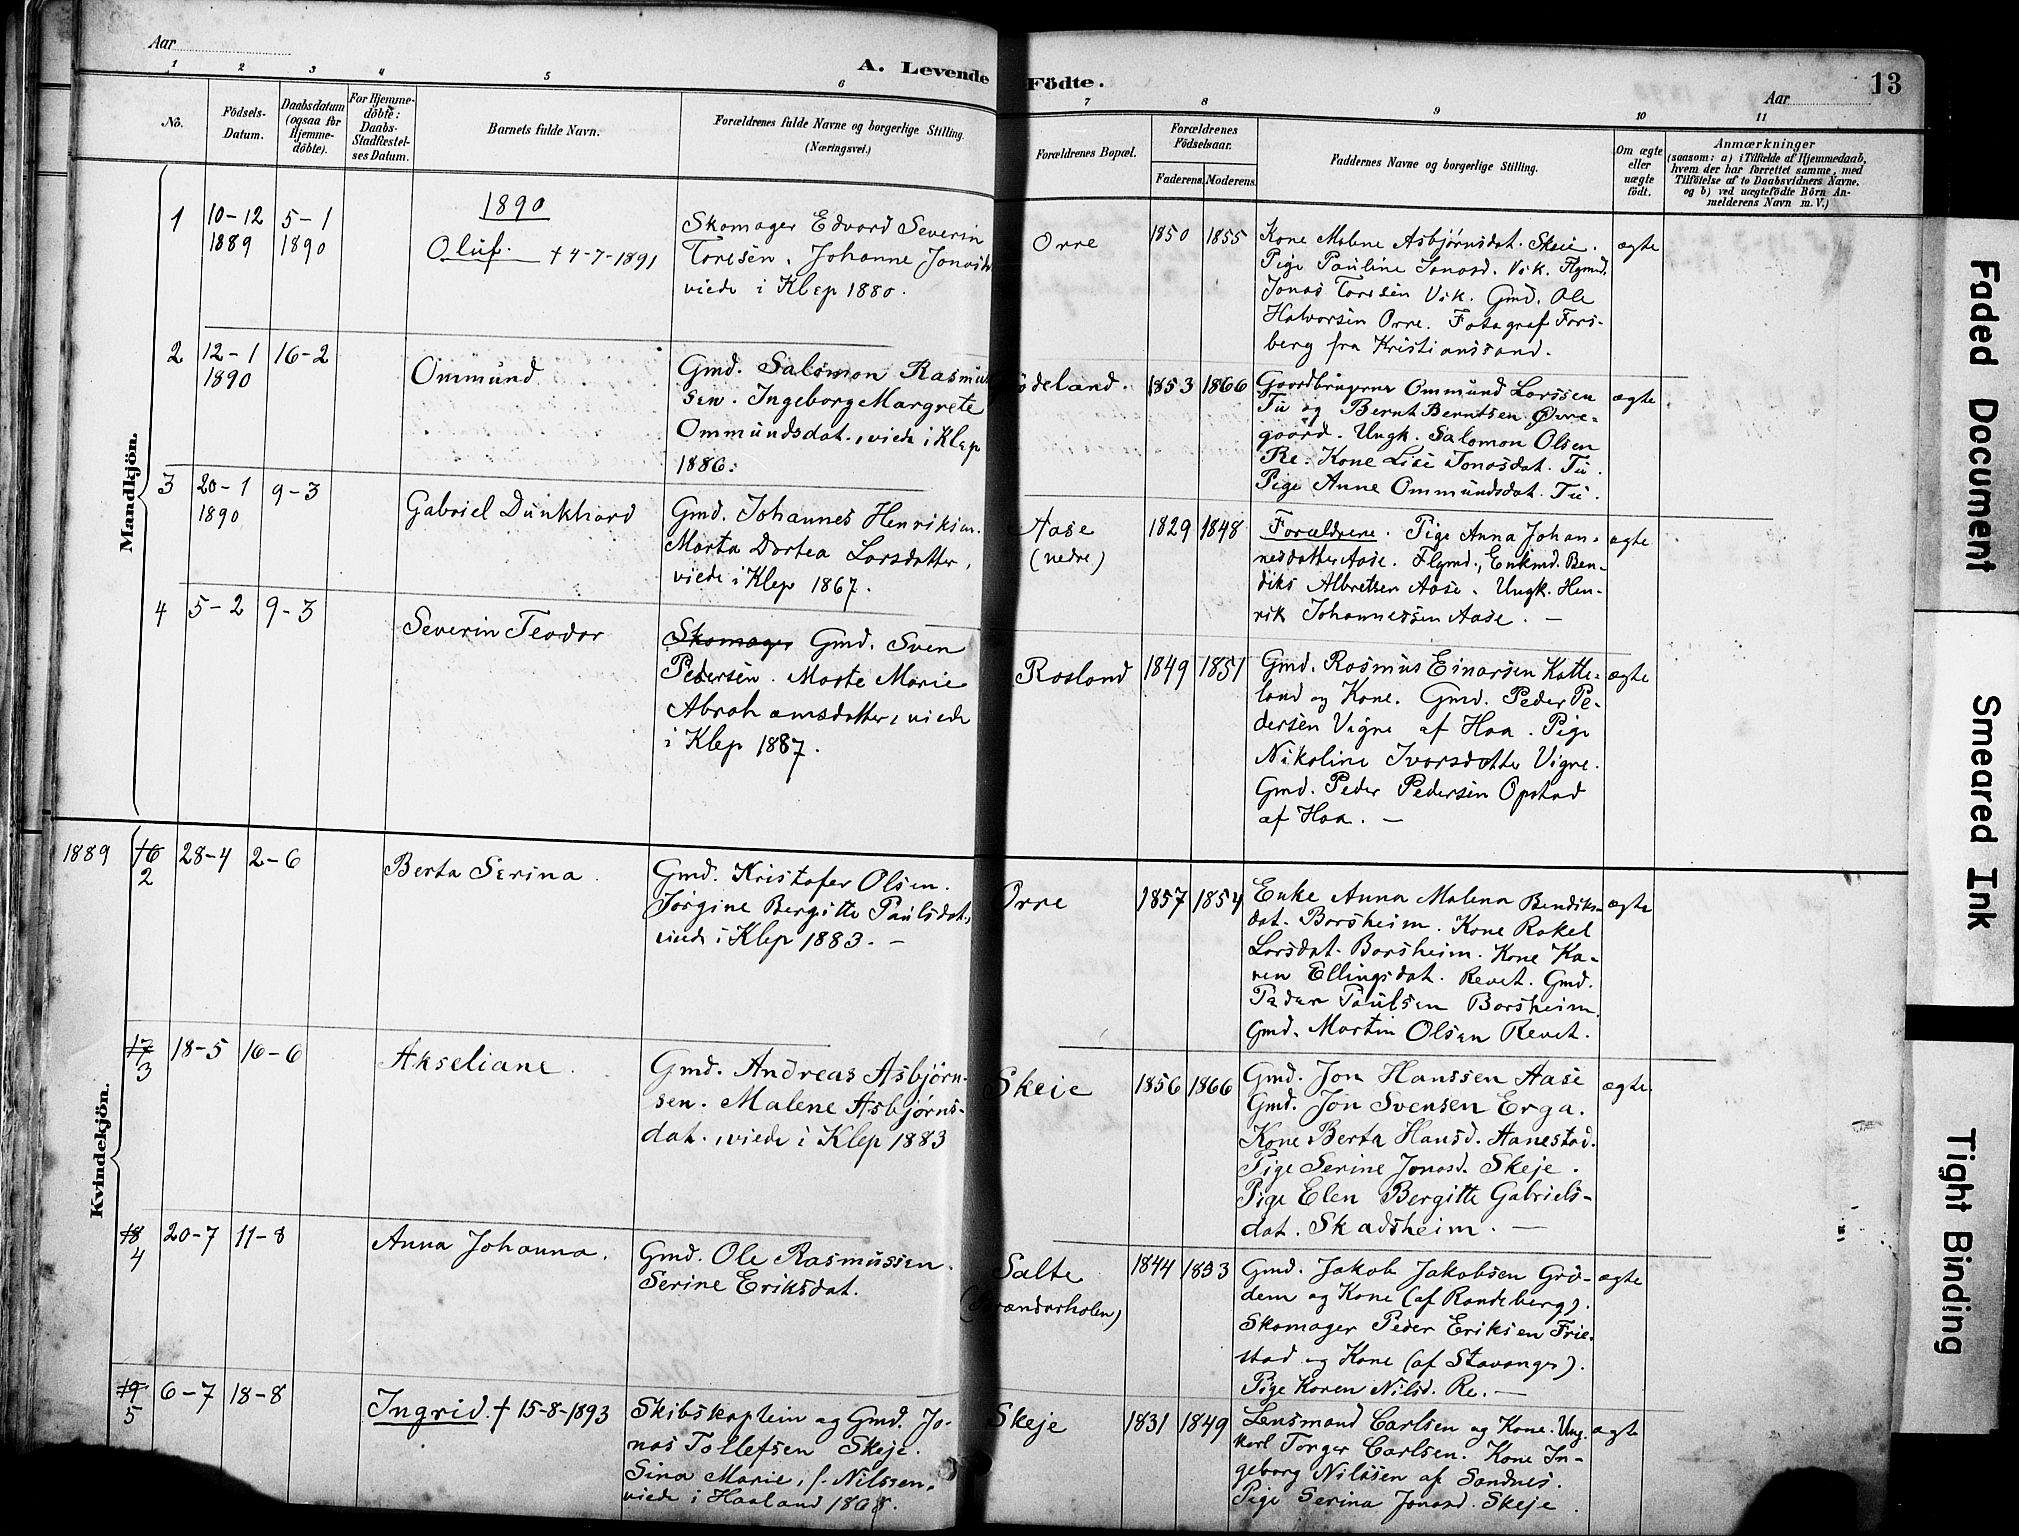 Aar
A. Levende Födte.
Aar
13
1 2 3 4 5 6 7 8 9 10 11
No.
Födsels-
Datum.
Daabsdatum
(ogsaa for
Hjemme-
döbte).
For Hjemme-
döbte:
Daabs-
Stadfæstel-
ses Datum.
Barnets fulde Navn.
Forældrenes fulde Navne og borgerlige Stilling.
(Næringsvei.)
Forældrenes Bopæl.
Forældrenes
Födselsaar.
Faderens. Moderens.
Faddernes Navne og borgerlige Stilling.
Om ægte
eller
uægte
födt.
Anmærkninger
(saasom: a) i Tilfælde af Hjemmedaab,
hvem der har forrettet samme, med
Tilföielse af to Daabsvidners Navne,
og b) ved uægtefödte Börn An-
melderens Navn m. V.)
Mandkjön.
1890
1
10-12
1889
5-1
1890
Oluf. † 4-7-1891
Skomager Edvard Severin
Toresen. Johanne
viede i Klep 1880.
Orre
1850 1855
Kone Malene Asbjørnsdat. Skeie.
Pige Pauline Jonasd. Vik. Flgmd.
Jonas Toresen Vik. Gmd. Ole
Halvorsen Orre. Fotograf Fors-
berg fra Kristianssand.
ægte
2
12-1
1890
16-2
Ommund
Gmd. Salomon Rasmus
sen. Ingeborg Margrete
Ommundsdat., viede i Klep
1886.
1853 1866
Gaardbrugerne Ommund Larssen
Tu og Bernt Berntsen Øvre-
gaard. Ungk. Salomon Olsen
Re. Kone Lise Jonasdat. Tu.
Pige Anne Ommundsdat. Tu.
ægte
3
20-1
1890
9-3
Gabriel Dunkhard
Gmd. Johannes Henriksen.
Marta Dortea Larsdatter,
viede i Klep 1867.
Aase
(nedre)
1829 1848
Forældrene. Pige Anna Johan-
nesdatter Aase. Flgmd., Enkmd. Ben-
diks Albretsen Aase. Ungk. Hen-
rik Johannessen Aase. —
ægte
4
5-2
9-3
Severin Teodor
Skomager Gmd. Sven
Pedersen. Marte Marie
Abrahamsdatter, viede
i Klep 1887.
Rosland
1849 1851
Gmd. Rasmus Einarsen Katte-
land og Kone. Gmd. Peder Pe-
dersen Vigre af Haa. Pige
Nikoline Ivarsdatter Vigre.
Gmd. Peder Pedersen Opstad
af Haa. —
ægte
Kvindekjön.
1889
16
2
28-4
2-6
Berta Serina.
Gmd. Kristofer Olsen.
Jørgine Bergitte Paulsdat.,
viede i Klep 1883. —
Orre
1857 1854
Enke Anna Malena Bendiks-
dat. Borsheim. Kone Rakel
Larsdat. Borsheim. Kone Ka-
ren Ellingsdat. Revet. Gmd.
Peder Paulsen Borsheim.
Gmd. Martin Olsen Revet.
ægte
17
3
18-5
16-6
Akseliane.
Gmd. Andreas Asbjørn-
sen. Malene Asbjørns-
dat., viede i Klep 1883
Skeie
1856 1866
Gmd. Jon Hanssen Aase
Gmd. Jon Svensen Erga.
Kone Berta Hansd. Aanestad.
Pige Serine Jonasd. Skeje.
Pige Elen Bergitte Gabriels-
dat. Skadsheim. —
ægte
18
4
20-7
11-8
Anna Johanna.
Gmd. Ole Rasmussen.
Serine Eriksdat.
Salte
1844 1853
Gmd. Jakob Jakobsen Grö-
dem og Kone (af Randeberg).
Skomager Peder Eriksen Frie-
stad og Kone (af Stavanger).
Pige Karen Nilsd. Re. —
ægte
19
5
6-7
18-8
Ingrid. † 15-8-1893
Skibskaptein og Gmd. Jo-
nas Tollefsen Skeje.
Sina Marie, f. Nilssen,
viede i Haaland 1868.
Skeje
1831 1849
Lensmand Carlsen og Kone. Ung-
karl Torger Carlsen. Kone In-
geborg Nilssen af Sandnes.
Pige Serina Jonasd. Skeje
ægte
Faded Document
Smeared Ink
Tight Binding